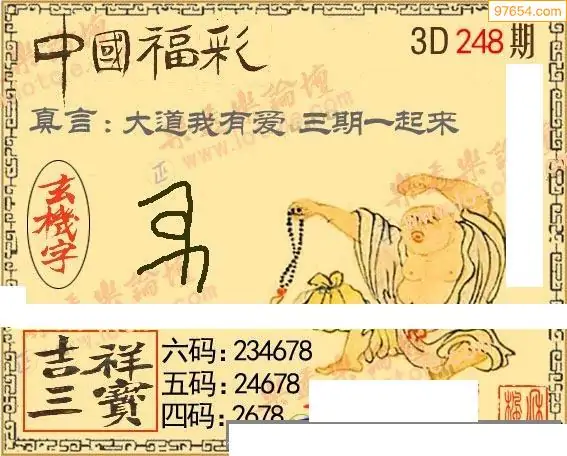 97654.com
中國福彩
3D 248 期
真言:大道我有爱 三期一起来
玄機字
吉祥三寶
六码:234678
五码:24678
四码:2678